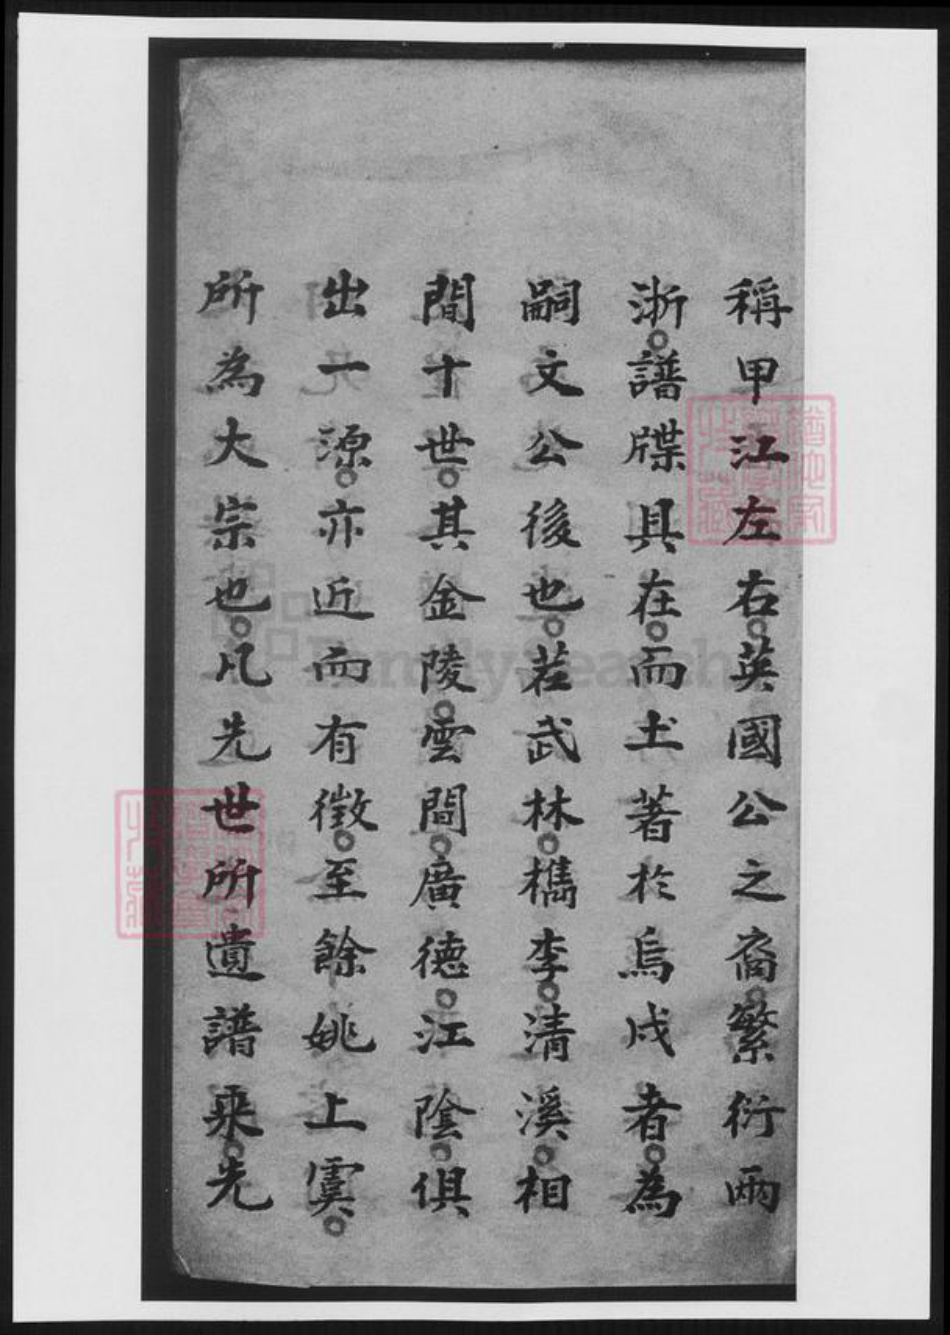 稱甲江左右。英國公之裔。繁衍兩
浙。譜牒具在。而土著於烏戍者。為
嗣文公後也。若武林。檇李。清溪。相
間十世。其金陵。雲間。廣德。江陰。俱
出一源。亦近而有徵。至餘姚上虞。
所為大宗也。凡先世所遺譜乘。先
FamilySearch